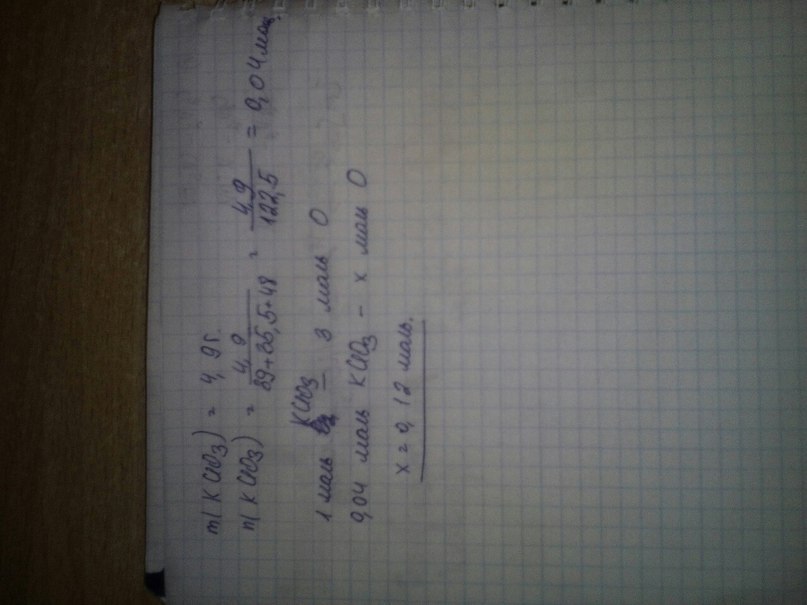 m(KClO3) = 4,9 г.
n(KClO3) = 4,9 / 39+35,5+48 = 4,9 / 122,5 = 0,04 моль.
1 моль KClO3 – 3 моль O
0,04 моль KClO3 – x моль O
x = 0,12 моль.